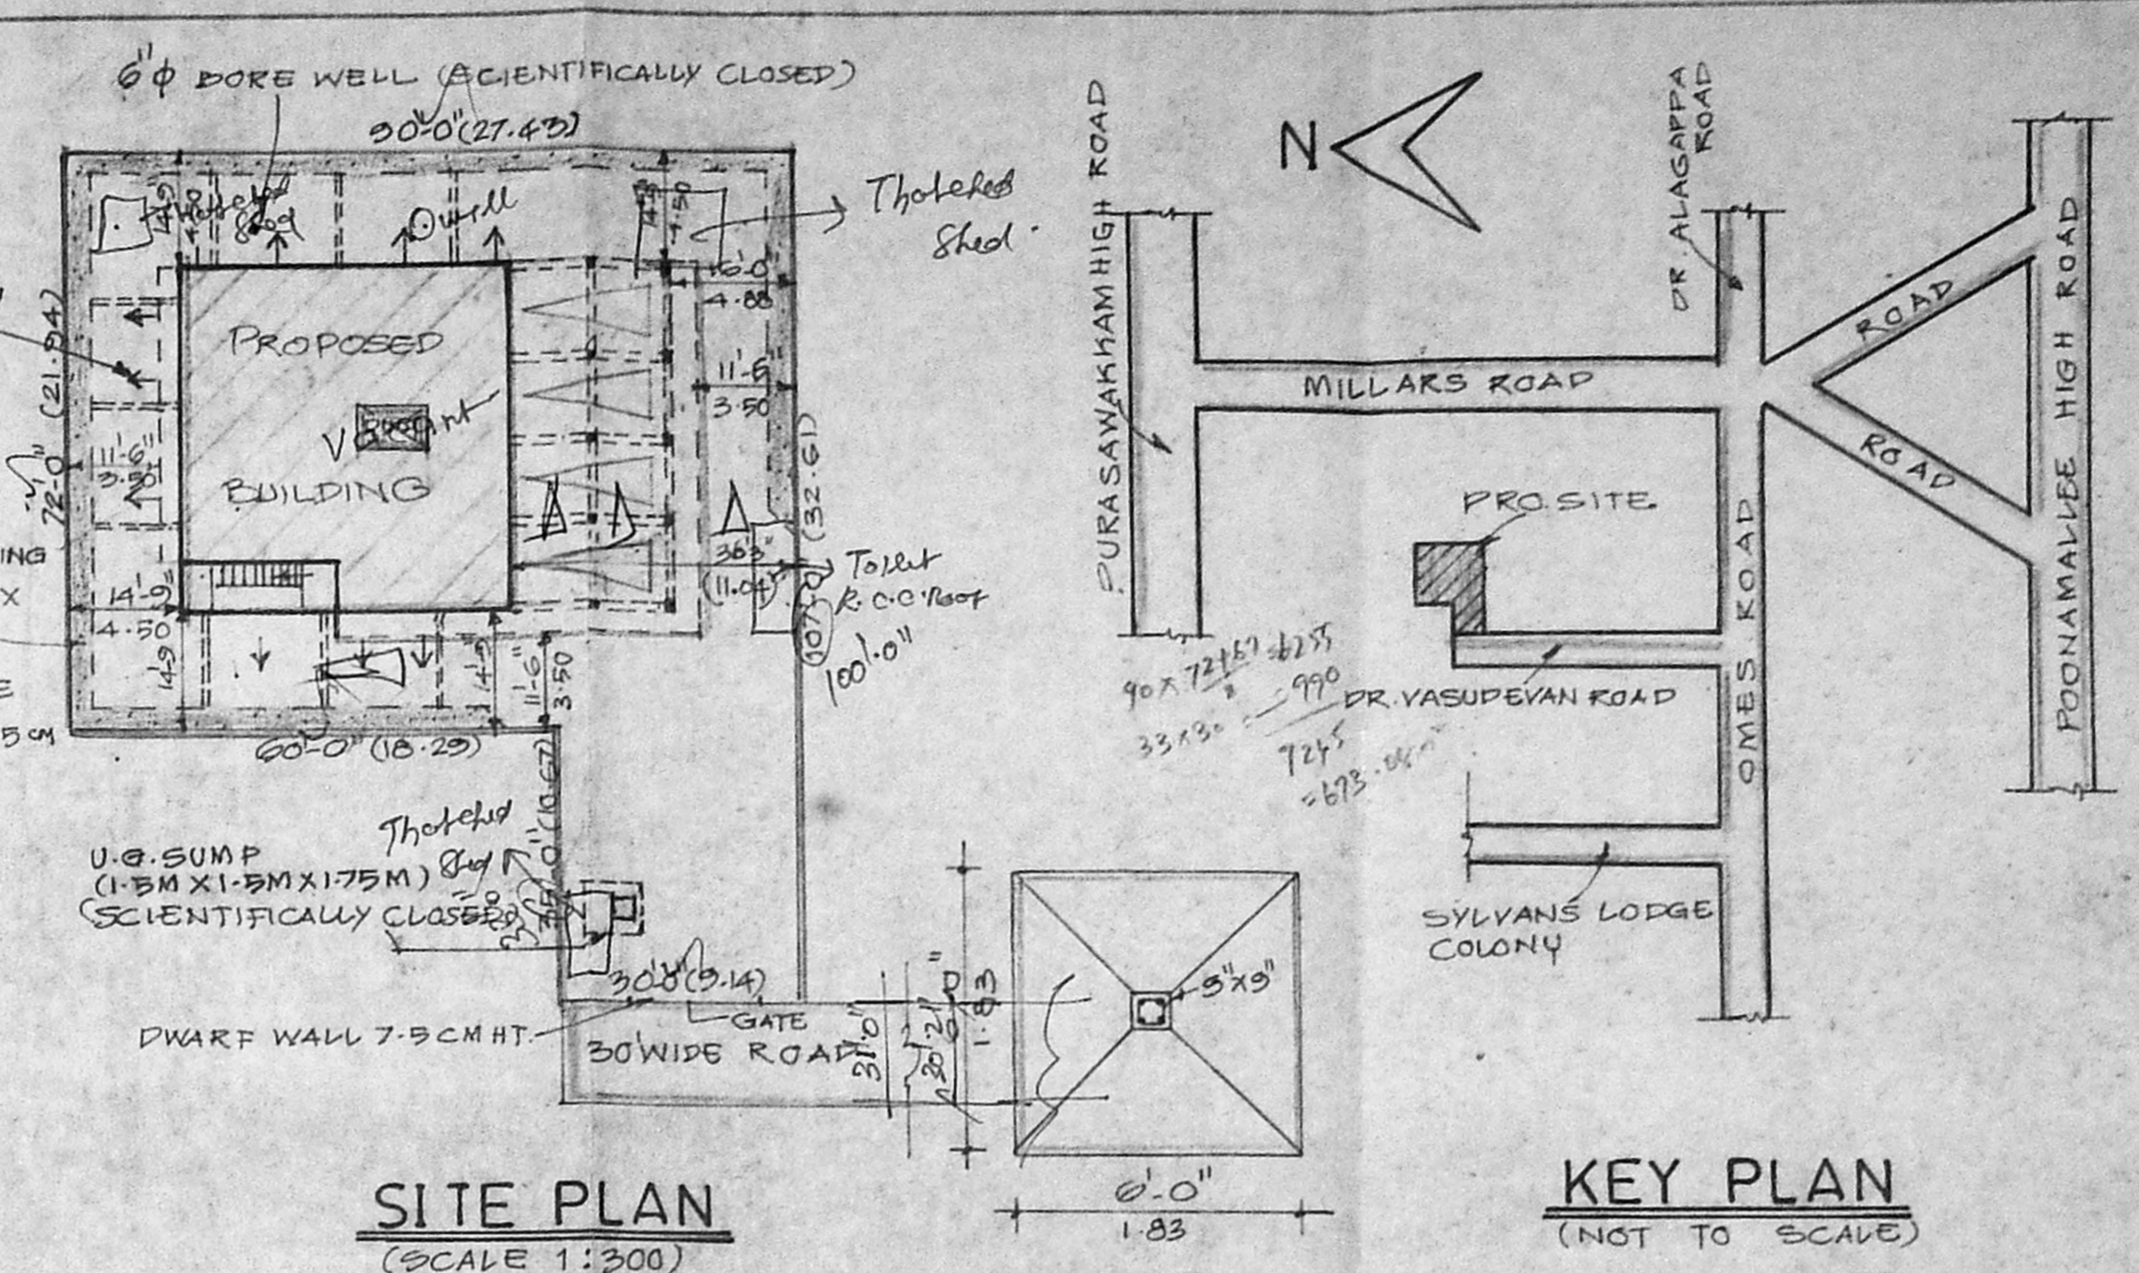 6"φ BORE WELL (SCIENTIFICALLY CLOSED)
90'-0" (27.43)
Thatched
Shed
Thatched
Shed
O well
14'-9"
4.50
4.50
16'-0"
4.88
11'-6"
3.50
PROPOSED
Vacant
BUILDING
72'-0" (21.94)
11'-6"
3.50
14'-9"
4.50
14'-9"
14'-9"
11'-6"
3.50
36'3"
(11.04)
Toilet
R.C.C. Roof
107'-0" (32.61)
100'.0"
ING
X
E
5 CM
60'-0" (18.29)
35'-0" (10.67)
Thatched
Shed
U.G. SUMP
(1.5M X 1.5M X 1.75M)
(SCIENTIFICALLY CLOSED)
30'-0" (9.14)
GATE
DWARF WALL 7.5 CM HT.
30' WIDE ROAD
31'.0"
30'.21"
6'-0"
1.83
9"x9"
6'-0"
1.83
SITE PLAN
(SCALE 1:300)
N
PURASAWAKKAM HIGH ROAD
DR. ALAGAPPA
ROAD
MILLARS ROAD
ROAD
ROAD
POONAMALLEE HIGH ROAD
PRO. SITE
OMES ROAD
DR. VASUDEVAN ROAD
90 x 72+67 = 6255
2
33x30 = 990
7245
SYLVANS LODGE
COLONY
KEY PLAN
(NOT TO SCALE)